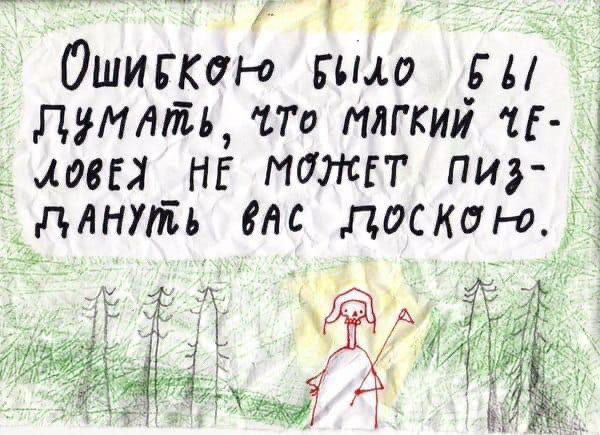 Ошибкою было бы
думать, что мягкий че-
ловек не может пиз-
дануть вас доскою.